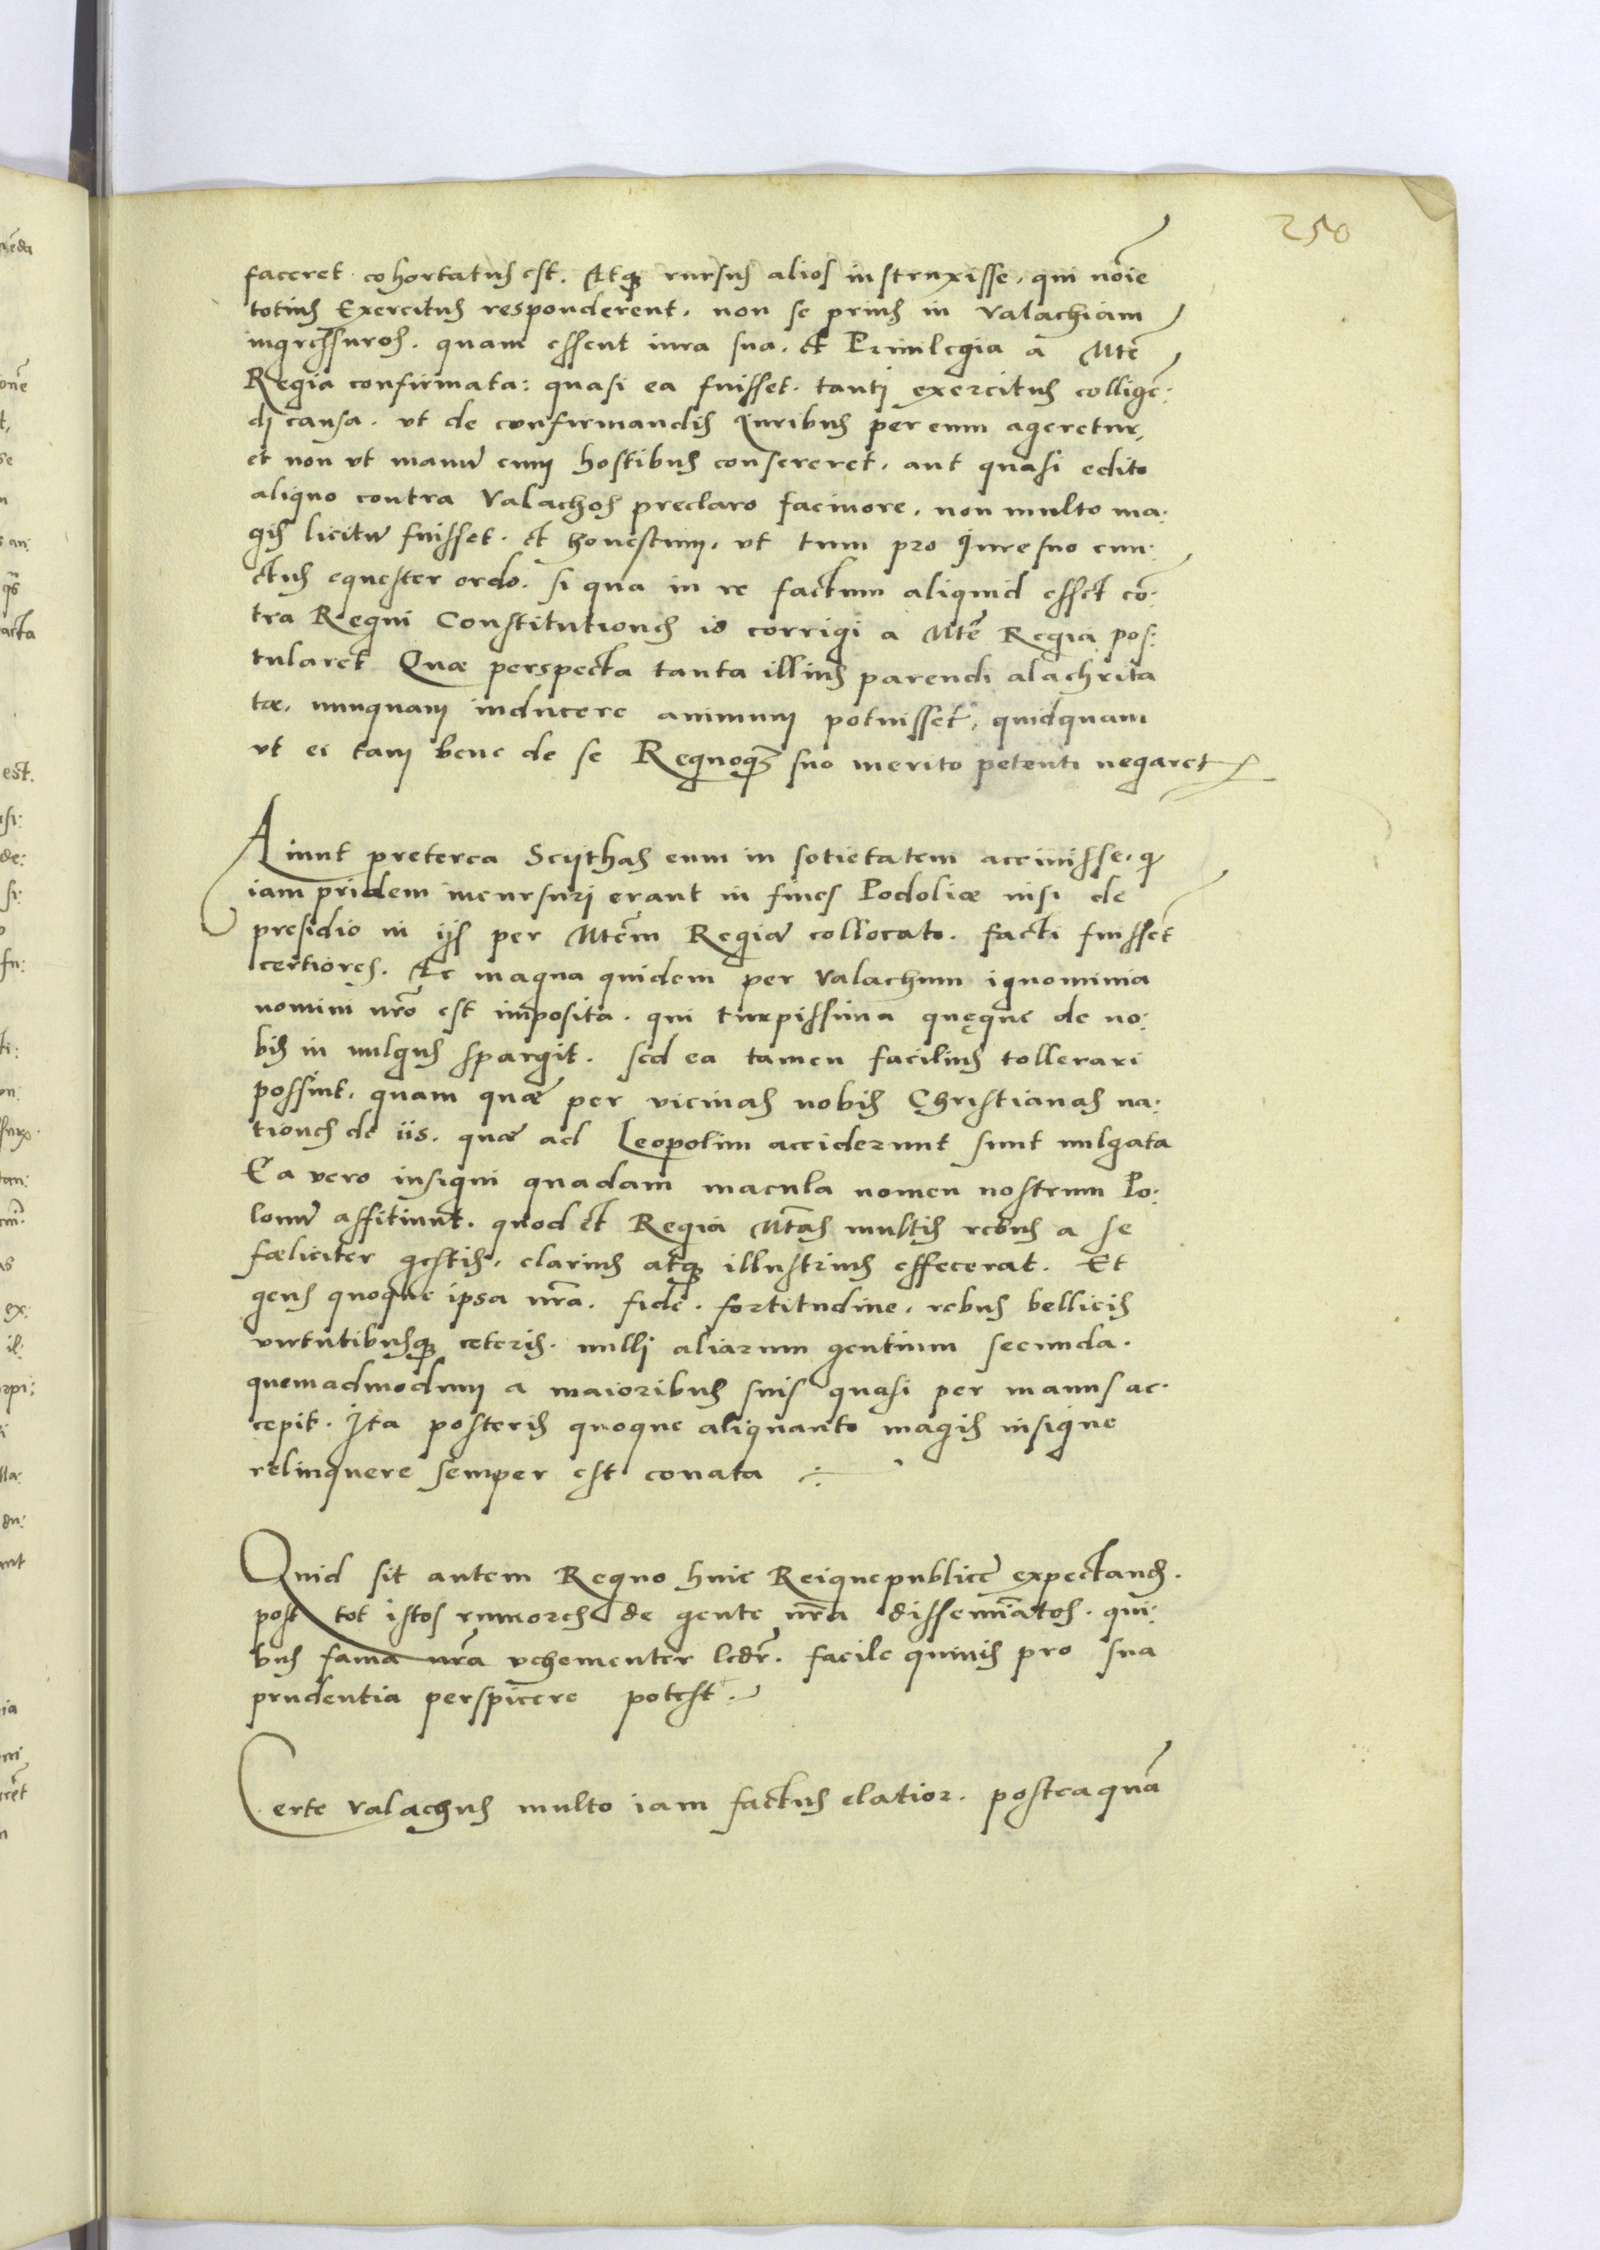 250
faceret cohortatus est. Atq3 rursus alios instruxisse, qui noĩe
totius Exercitus responderent, non se prius in Valachiam
ingressuros, quam essent iura sua, et Priuilegia a Mte
Regia confirmata: quasi ea fuisset tanti exercitus colligẽ:
di causa. vt de confirmandis Iuribus per eum ageretur,
et non vt manũ cum hostibus consereret, aut quasi edito
aliquo contra Valachos preclaro facinore, non multo ma:
gis licitũ fuisset et honestum, vt tum pro Iure suo cun:
ctus equester ordo, si qua in re factum aliquid esset cõ:
tra Regni Constitutiones id corrigi a Mte Regia pos:
tularet Quæ perspecta tanta illius parendi alachrita
tæ, nunquam inducere animum potuisset, quidquam
vt ei tam bene de se Regnoq3 suo merito petenti negaret
Aiunt preterea Scythas eum in sotietatem acciuisse, qi
iam pridem incursuri erant in fines Podoliæ nisi de
presidio in ijs per Mtẽm Regiã collocato. facti fuissẽt
certiores. Ac magna quidem per Valachum ignominia
nomini nrõ est imposita. qui turpissima quęque de no:
bis in uulgus spargit. sed ea tamen facilius tollerari
possint, quam quæ per vicinas nobis Christianas na:
tiones de iis. quæ ad Leopolim acciderunt sunt uulgata
Ea vero insigni quadam macula nomen nostrum Po:
lonũ affitiunt. quod et Regia Mtas multis rebus a se
fœliciter gestis, clarius atq3 illustrius effecerat. Et
gens quoque ipsa nrã. fide. fortitudine, rebus bellicis
virtutibusq3 ceteris. nulli aliarum gentium secunda.
quemadmodum a maioribus suis quasi per manus ac:
cepit. Ita posteris quoque aliquanto magis insigne
relinquere semper est conata
Quid sit autem Regno huic Reiquepublicẽ expectand.
post tot istos rumores de gente nrã dissemĩatos. qui:
bus fama nrã vehementer ledr̃. facile quiuis pro sua
prudentia perspicere potest.
Certe Valachus multo iam factus elatior. posteaquã